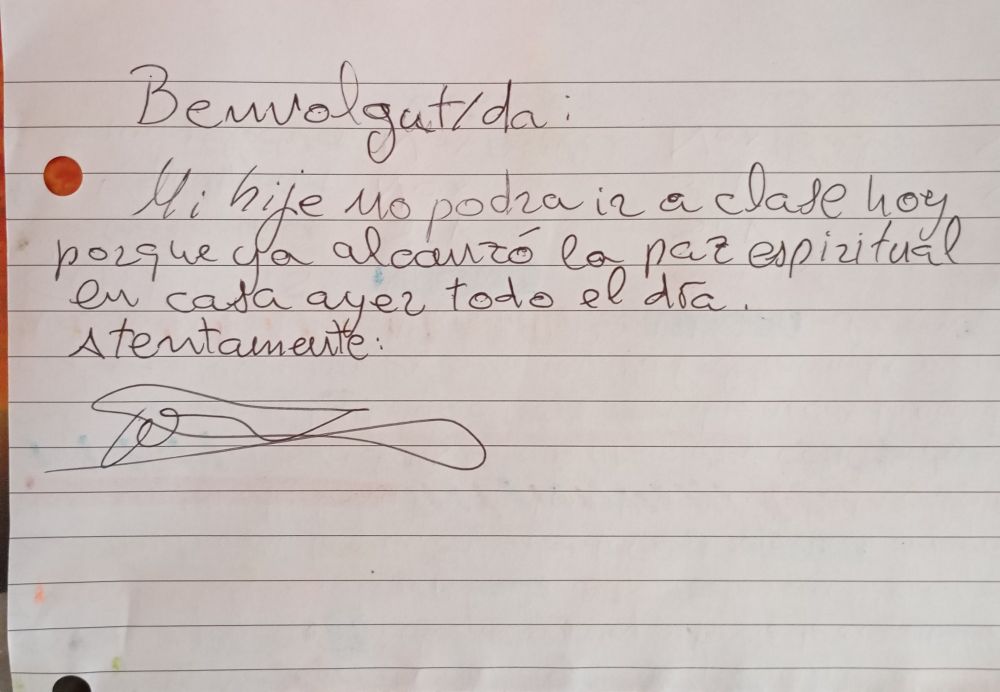 Benvolgut/da:
Mi hije no podra ir a clase hoy
porque ya alcanzó la paz espiritual
en casa ayer todo el día.
Atentamente: